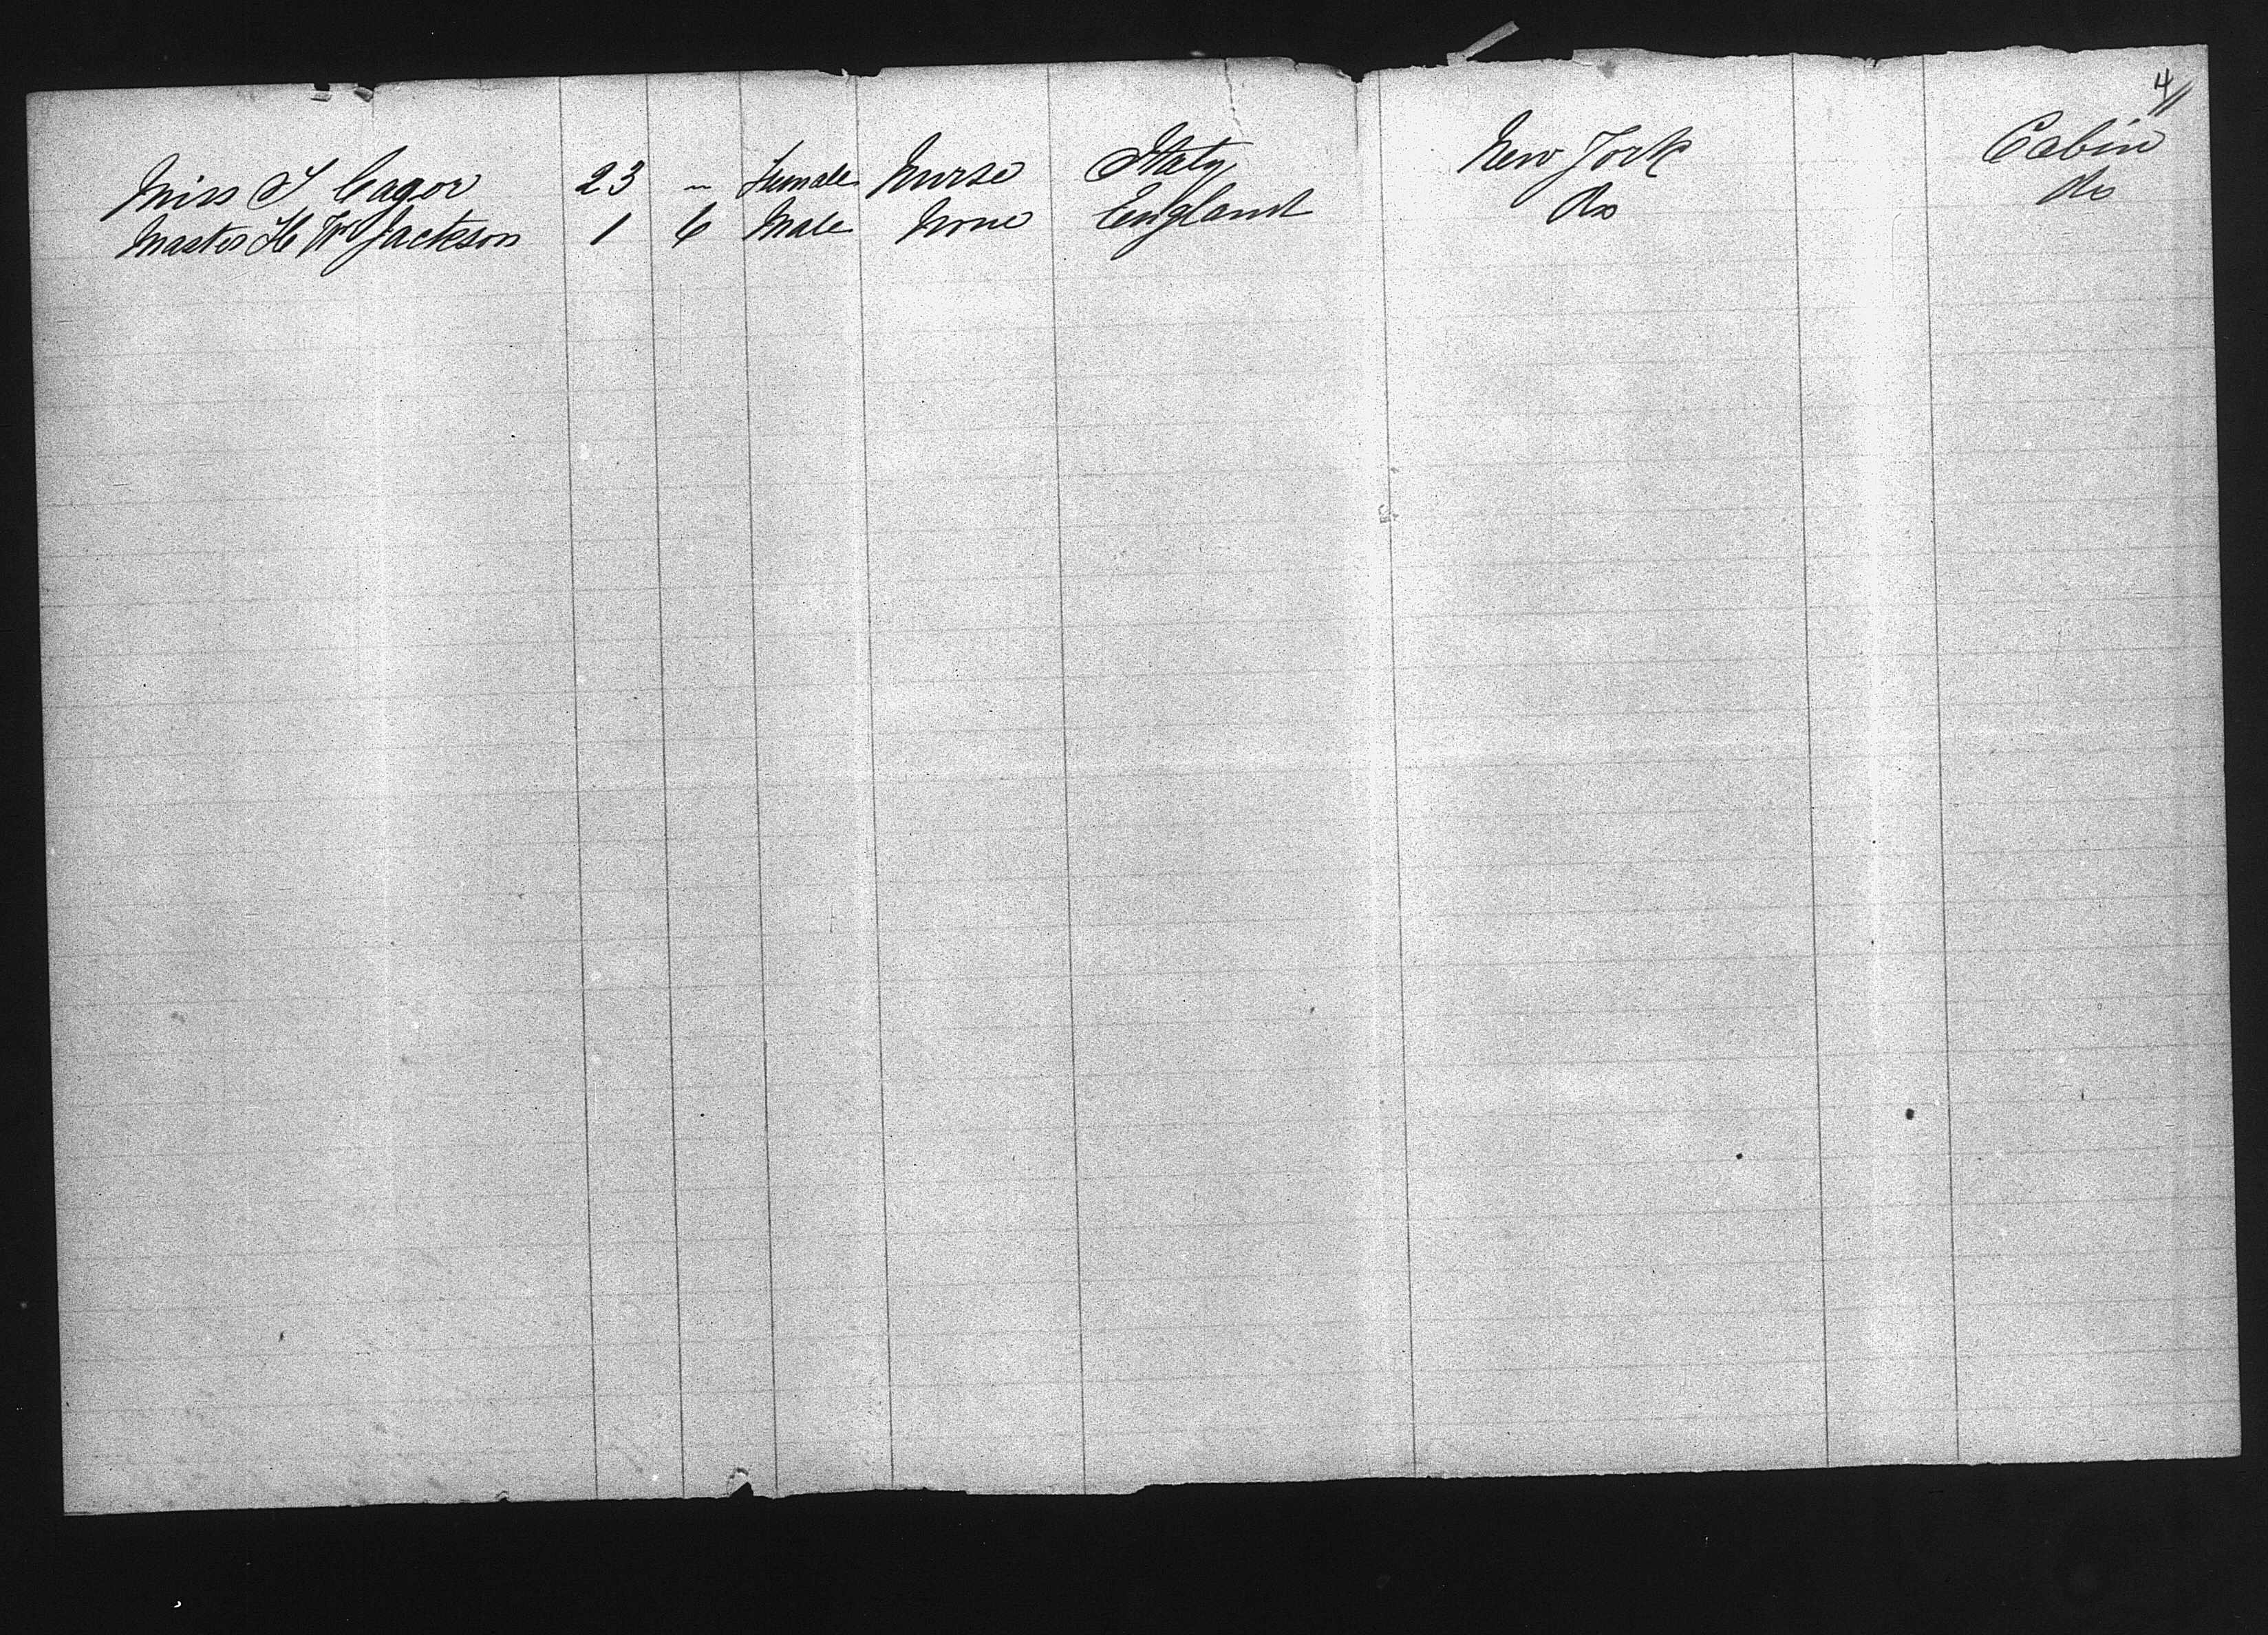 4
Miss I Cagor 23 " Female Nurse Italy New York Cabin
Master H W Jackson 1 6 Male None England do do